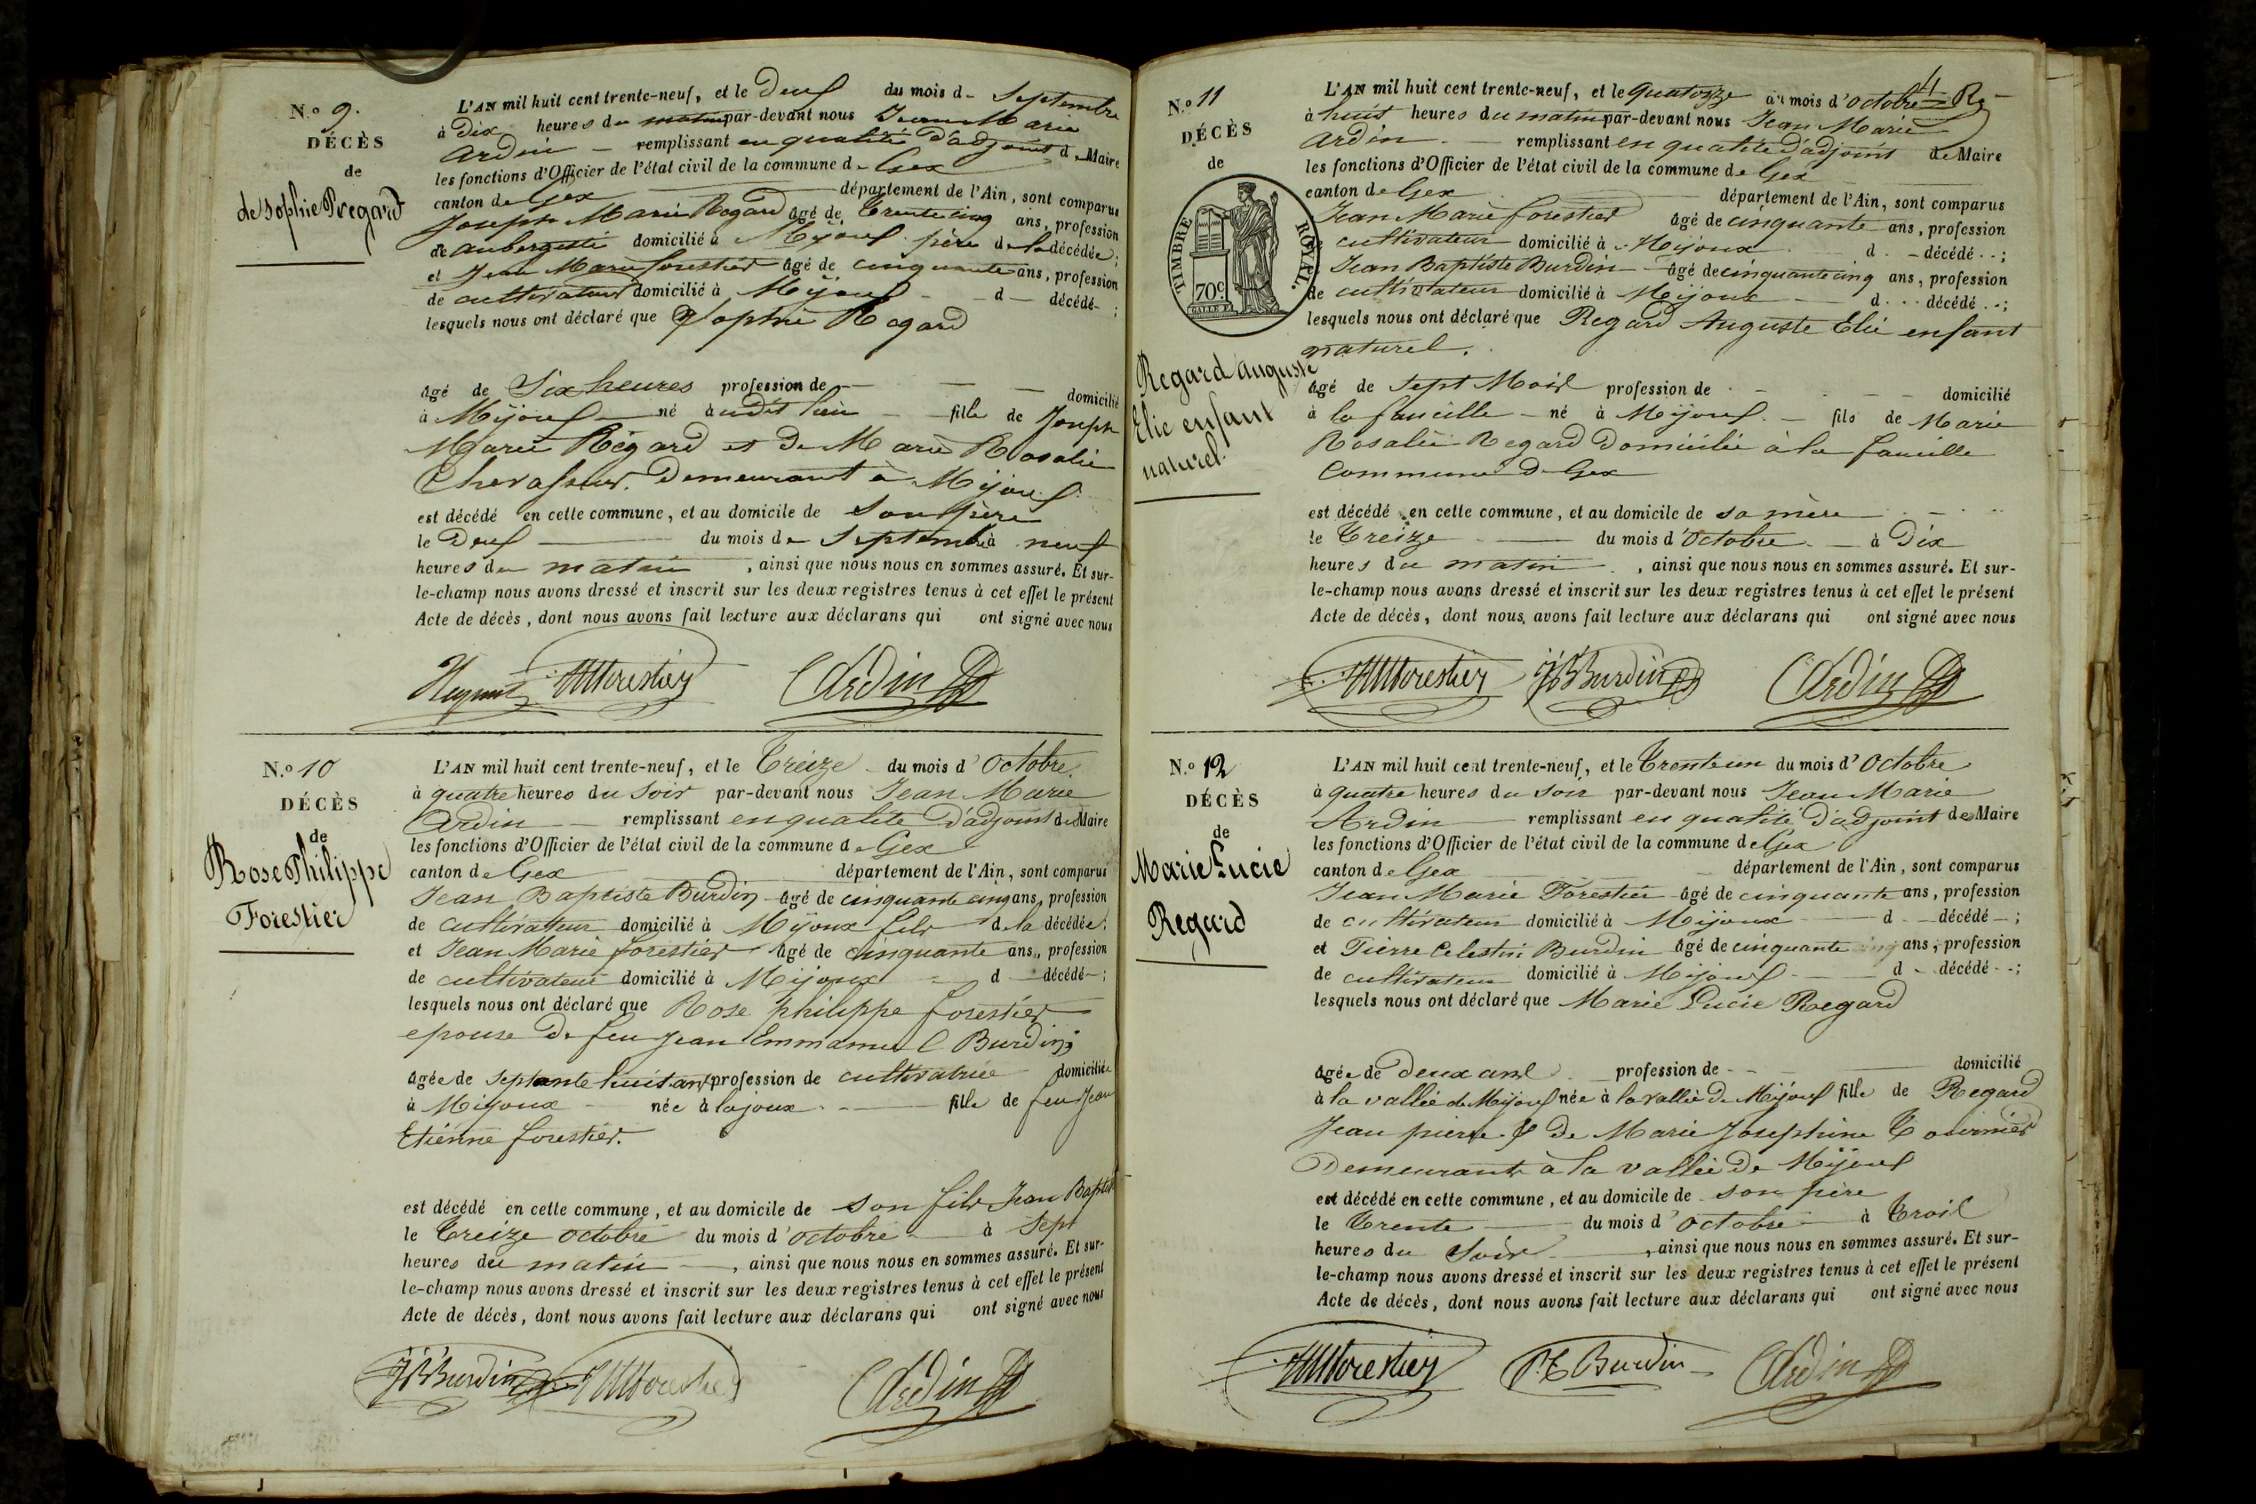 N.o 9.
DÉCÈS
de
de Sophie Regard
L'AN mil huit cent trente-neuf, et le Deux du mois de Septembre
à Dix heures du matin par-devant nous Jean Marie
Ardin remplissant en qualité d'adjoint de Maire
les fonctions d'Officier de l'état civil de la commune de Gex
canton de Gex département de l'Ain, sont comparus
Joseph Marie Regard âgé de trente cinq ans, profession
de aubergiste domicilié à Mijoux père de la décédée;
et Jean Marie forestier âgé de cinquante ans, profession
de cultivateur domicilié à Mijoux d décédé ;
lesquels nous ont déclaré que Sophie Regard
âgé de Six heures profession de domicilié
à Mijoux né audit lieu fille de Joseph
Marie Régard et de Marie Rosalie
Chevassus. Demeurant à Mijoux
est décédé en cette commune, et au domicile de son père
le Deux du mois de Septembre à neuf
heures du matin, ainsi que nous nous en sommes assuré. Et sur-
le-champ nous avons dressé et inscrit sur les deux registres tenus à cet effet le présent
Acte de décès, dont nous avons fait lecture aux déclarans qui ont signé avec nous
JMforestier Ardin
N.o 10
DÉCÈS
de
Rose Philippe
Forestier
L'AN mil huit cent trente-neuf, et le Treize du mois d'Octobre
à quatre heures du Soir par-devant nous Jean Marie
Ardin remplissant en qualité d'adjoint de Maire
les fonctions d'Officier de l'état civil de la commune de Gex
canton de Gex département de l'Ain, sont comparus
Jean Baptiste Burdin âgé de cinquante cinq ans, profession
de cultivateur domicilié à Mijoux fils de la décédée;
et Jean Marie forestier âgé de cinquante ans, profession
de cultivateur domicilié à Mijoux d décédé ;
lesquels nous ont déclaré que Rose philippe forestier
epouse de feu Jean Emmanuel Burdin;
âgée de septante huit ans profession de cultivatrice domiciliée
à Mijoux née à lajoux fille de feu Jean
Etienne forestier.
est décédé en cette commune, et au domicile de son fils Jean Baptiste
le Treize octobre du mois d'octobre à Sept
heures du matin, ainsi que nous nous en sommes assuré. Et sur-
le-champ nous avons dressé et inscrit sur les deux registres tenus à cet effet le présent
Acte de décès, dont nous avons fait lecture aux déclarans qui ont signé avec nous
JBBurdin JMforestier Ardin
N.o 11
DÉCÈS
de
TIMBRE ROYAL.
70c
Regard auguste
Elie enfant
naturel.
L'AN mil huit cent trente-neuf, et le Quatorze du mois d'octobre
à huit heures du matin par-devant nous Jean Marie
Ardin remplissant en qualité d'adjoint de Maire
les fonctions d'Officier de l'état civil de la commune de Gex
canton de Gex département de l'Ain, sont comparus
Jean Marie forestier âgé de cinquante ans, profession
cultivateur domicilié à Mijoux d décédé ;
Jean Baptiste Burdin âgé de cinquante cinq ans, profession
de cultivateur domicilié à Mijoux d décédé ;
lesquels nous ont déclaré que Regard Auguste Elie enfant
naturel.
âgé de sept Mois profession de domicilié
à la faucille né à Mijoux fils de Marie
Rosalie Regard Domiciliée à la faucille
Commune de Gex
est décédé en cette commune, et au domicile de sa mère
le Treize du mois d'Octobre à Dix
heures du matin, ainsi que nous nous en sommes assuré. Et sur-
le-champ nous avons dressé et inscrit sur les deux registres tenus à cet effet le présent
Acte de décès, dont nous avons fait lecture aux déclarans qui ont signé avec nous
JMforestier JBBurdin Ardin
N.o 12
DÉCÈS
de
Marie Lucie
Regard
L'AN mil huit cent trente-neuf, et le Trente un du mois d'Octobre
à quatre heures du soir par-devant nous Jean Marie
Ardin remplissant en qualité d'adjoint de Maire
les fonctions d'Officier de l'état civil de la commune de Gex
canton de Gex département de l'Ain, sont comparus
Jean Marie Forestier âgé de cinquante ans, profession
de cultivateur domicilié à Mijoux d décédé ;
et Pierre Celestin Burdin âgé de cinquante cinq ans, profession
de cultivateur domicilié à Mijoux d décédé ;
lesquels nous ont déclaré que Marie Lucie Regard
âgée de deux ans profession de domicilié
à la vallée de Mijoux née à la vallée de Mijoux fille de Regard
Jean pierre & de Marie Josephine Tournier
Demeurant à la vallée de Mijoux
est décédé en cette commune, et au domicile de son père
le Trente du mois d'octobre à Trois
heures du Soir, ainsi que nous nous en sommes assuré. Et sur-
le-champ nous avons dressé et inscrit sur les deux registres tenus à cet effet le présent
Acte de décès, dont nous avons fait lecture aux déclarans qui ont signé avec nous
JMforestier P.C Burdin Ardin